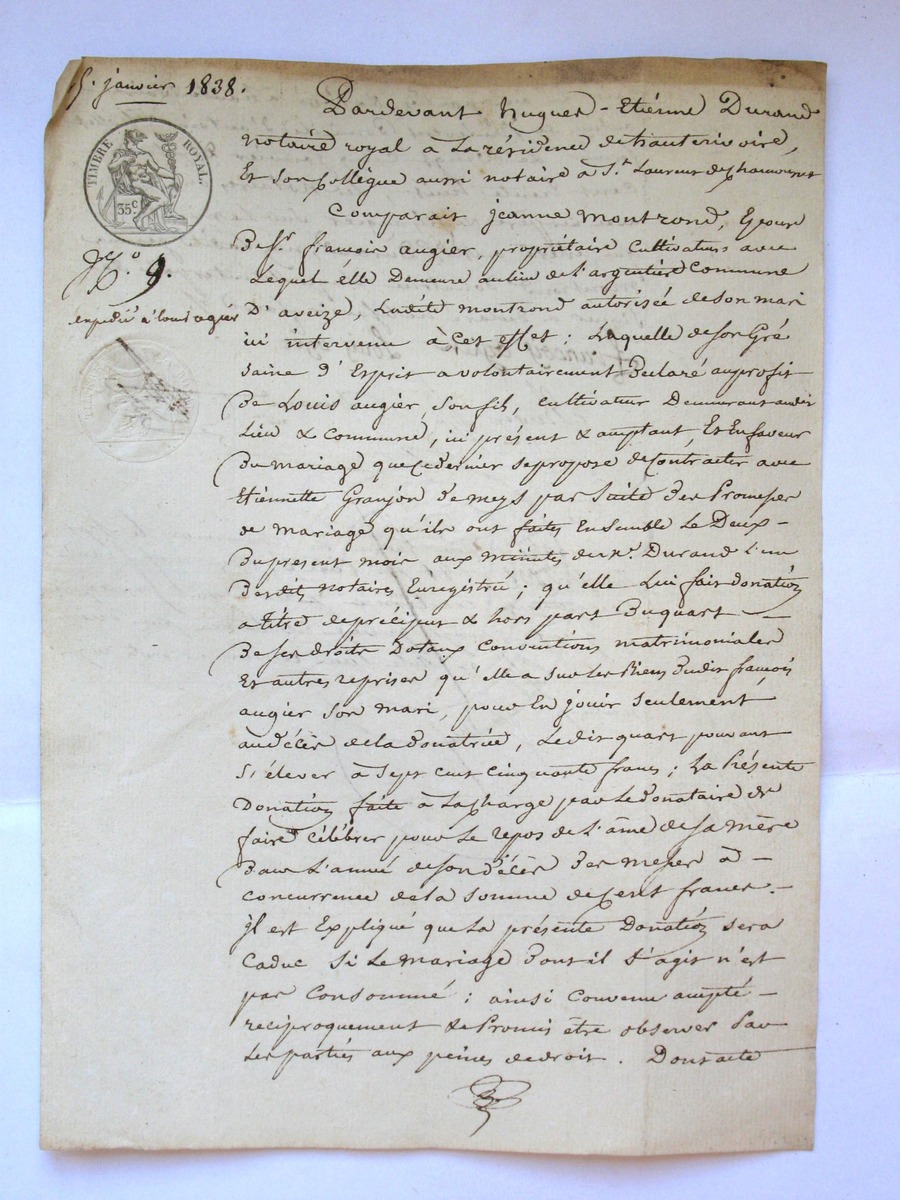 5. janvier 1838.
TIMBRE ROYAL.
35c
No 9.
expédié à louis ogier
Pardevant hugues-Etiénne Durand
notaire royal à la résidence de hauterivoire,
Et son Collègue aussi notaire à St. Laurent de Chamousset
Comparait jeanne montrond, Epouse
De Sr. francois augier, propriétaire cultivateur avec
Lequel élle Demeure au lieu de l'argentiére Commune
D'aveize, Ladite montrond autorisée de son mari
ici intervenu à cet effet ; Laquelle de son Gré
saine d'Esprit a volontairement Déclaré au profit
De Louis augier, son fils, cultivateur Demeurant audit
Lieu & Commune, ici présent & acceptant, Et En faveur
Du mariage que Ce dernier se propose de Contracter avec
Etiénnette Granjon de meys par Suite Des Promesses
de mariage qu'ils ont faites Ensemble Le Deux -
Du présent mois aux minutes de me. Durand l'un
Desdits notaires Enregistré ; qu'elle Lui fait donation
a titre de préciput & hors part Du quart -
De ses droits Dotaux Conventions matrimoniales
Et autres reprises qu'elle a sur Les Biens Dudit francois
augier son mari, pour En jouir seulement
au décès de la donatrice, Ledit quart pouvant
s'élever à sept cent cinquante francs ; La Présente
Donation faite à La Charge par Le donataire de
faire Célébrer pour Le repos de L'âme de sa mère
Dans L'année de son décès Des messes à -
concurrence de la somme de Cent francs. -
jl est Expliqué que La présente Donation sera
Caduc si Le mariage Dont il s'agit n'est
pas Consommé ; ainsi Convenu accepté -
réciproquement & Promis être observer Par
Les parties aux peines de droit. Dont acte